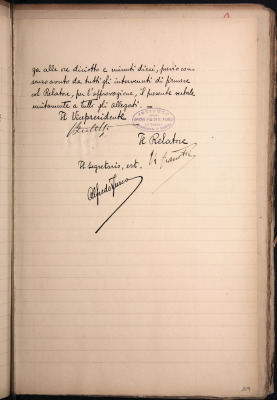 ga alle ore diciotto e minuti dieci, previo con
senso avuto da tutti gli intervenuti di firmare
col Relatore, per l'approvazione, il presente verbale
unitamente a tutti gli allegati. —
Il Vicepresidente
Il Relatore
Il Segretario, est.
Alfredo